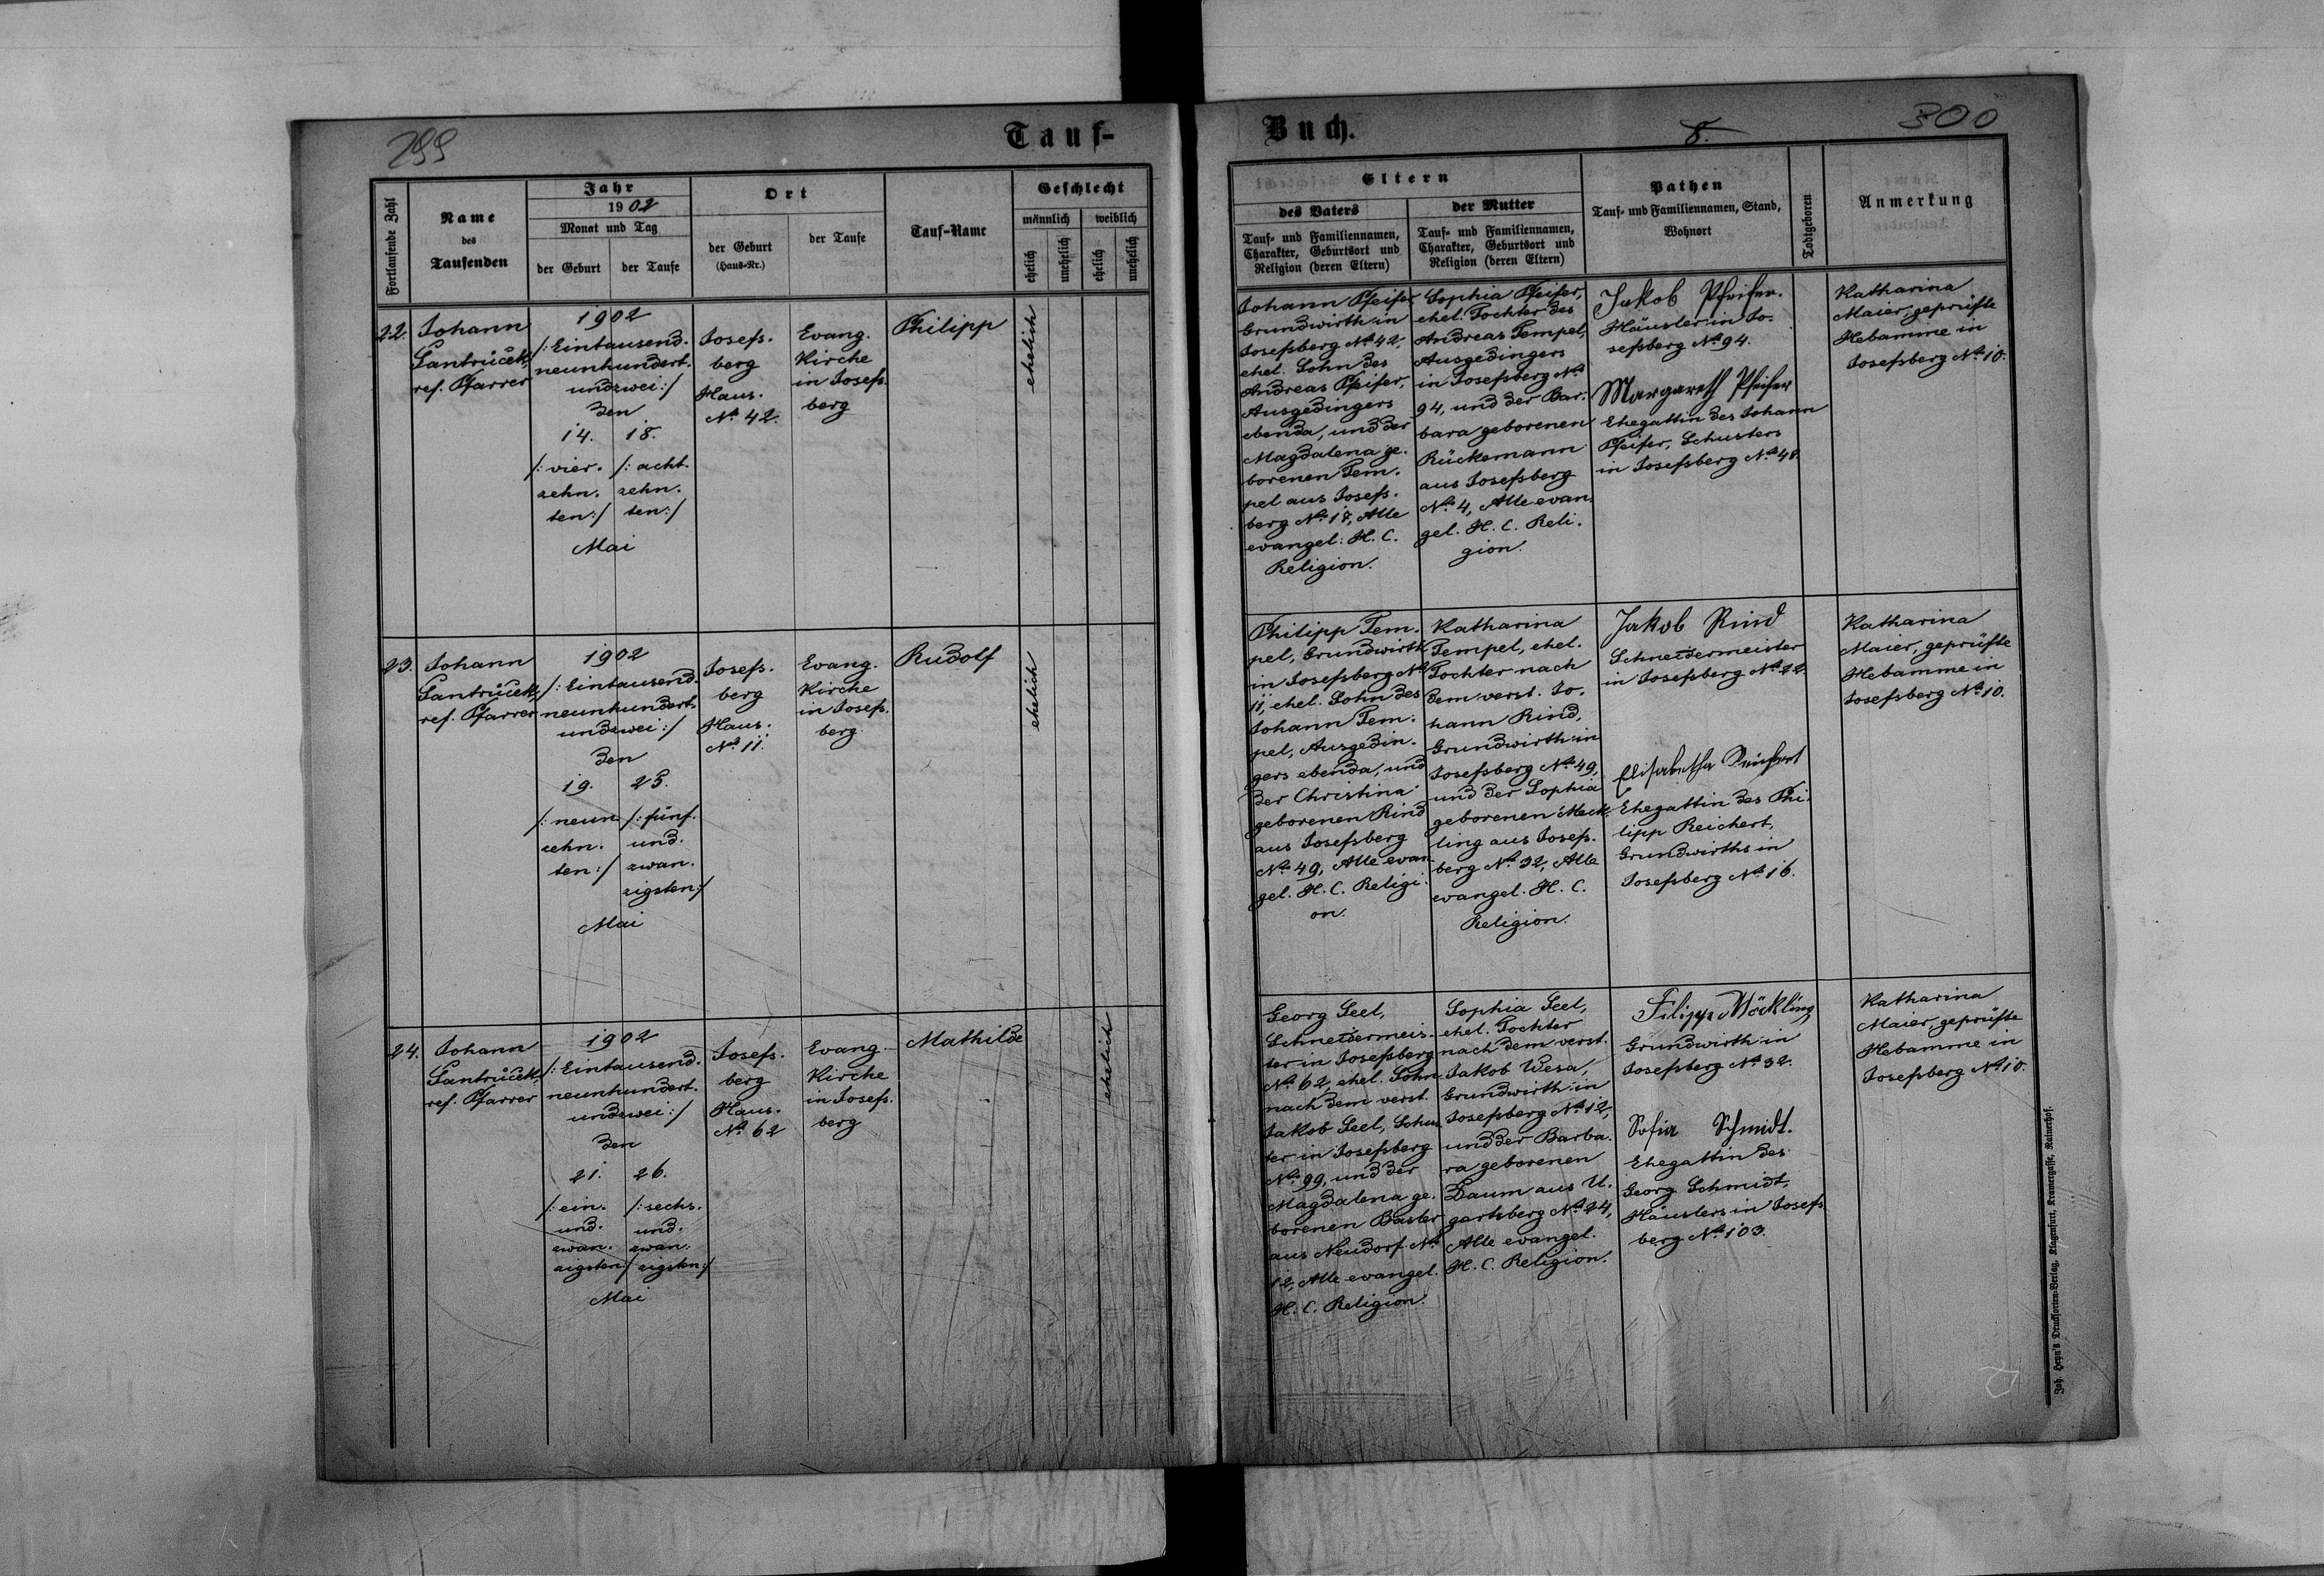 299
Tauf-
Fortlaufende Zahl
Name
des
Taufenden
Jahr
1902
Monat und Tag
der Geburt
der Taufe
Ort
der Geburt
(Haus-Nr.)
der Taufe
Tauf-Name
Geschlecht
männlich
weiblich
ehelich
unehelich
ehelich
unehelich
22.
Johann
ref. Pfarrer
1902
/: Eintausend-
neunhundert-
undzwei :/
den
14. 18.
/: vier- /: acht-
zehn- zehn-
ten :/ ten :/
Mai
Josefs-
berg
Haus-
No 42.
Evang.
Kirche
in Josefs-
berg
Philipp
ehelich
23.
Johann
ref. Pfarrer
1902
/: Eintausend-
neunhundert-
undzwei :/
den
19. 25.
/: neun- /: fünf-
zehn- und-
ten :/ zwan-
zigsten :/
Mai
Josefs-
berg
Haus-
No 11.
Evang.
Kirche
in Josefs-
berg
Rudolf
ehelich
24.
Johann
ref. Pfarrer
1902
/: Eintausend-
neunhundert-
undzwei :/
den
21. 26.
/: ein- /: sechs-
und- und-
zwan- zwan-
zigsten :/ zigsten :/
Mai
Josefs-
berg
Haus-
No 62
Evang.
Kirche
in Josefs-
berg
Mathilde
ehelich
Buch.
8.
300
Eltern
des Vaters
Tauf- und Familiennamen,
Charakter, Geburtsort und
Religion (deren Eltern)
der Mutter
Tauf- und Familiennamen,
Charakter, Geburtsort und
Religion (deren Eltern)
Pathen
Tauf- und Familiennamen, Stand,
Wohnort
Todtgeboren
Anmerkung
Johann Pfeifer
Grundwirth in
Josefsberg No 42,
ehel. Sohn des
Andreas Pfeifer,
Ausgedingers
ebenda, und der
Magdalena ge-
borenen Tem-
pel aus Josefs-
berg No 18, Alle
evangel. H. C.
Religion.
Sophia Pfeifer,
ehel. Tochter des
Andreas Tempel,
Ausgedingers
in Josefsberg No
94, und der Bar-
bara geborenen
Rückemann
aus Josefsberg
No 4, Alle evan-
gel. H. C. Reli-
gion.
Jakob Pfeifer.
Häusler in Jo-
sefsberg No 94.
Margareth Pfeifer
Ehegattin des Johann
Pfeifer, Schusters
in Josefsberg No 48.
Katharina
Maier, geprüfte
Hebamme in
Josefsberg No 10.
Philipp Tem-
pel, Grundwirth
in Josefsberg No
11, ehel. Sohn des
Johann Tem-
pel, Ausgedin-
gers ebenda, und
der Christina
geborenen Rind
aus Josefsberg
No 49, Alle evan-
gel. H. C. Religi-
on.
Katharina
Tempel, ehel.
Tochter nach
dem verst. Jo-
hann Rind,
Grundwirth in
Josefsberg No 49,
und der Sophia
geborenen Meck-
ling aus Josefs-
berg No 32, Alle
evangel. H. C.
Religion.
Jakob Rind
Schneidermeister
in Josefsberg No 22
Elisabetha Reichert
Ehegattin des Phi-
lipp Reichert,
Grundwirths in
Josefsberg No 16.
Katharina
Maier, geprüfte
Hebamme in
Josefsberg No 10.
Georg Seel,
Schneidermeis-
ter in Josefsberg
No 62, ehel. Sohn
nach dem verst.
Jakob Seel, Schus-
ter in Josefsberg
No 99, und der
Magdalena ge-
borenen Basler
aus Neudorf No
12, Alle evangel.
H. C. Religion.
Sophia Seel,
ehel. Tochter
nach dem verst.
Jakob Wesa,
Grundwirth in
Josefsberg No 12,
und der Barba-
ra geborenen
Daum aus U-
gartsberg No 24,
Alle evangel.
H. C. Religion.
Filipp Möckling
Grundwirth in
Josefsberg No 32.
Sofia Schmidt.
Ehegattin des
Georg Schmidt,
Häuslers in Josefs-
berg No 103.
Katharina
Maier, geprüfte
Hebamme in
Josefsberg No 10.
Joh. Heyn's Drucksorten-Verlag, Klagenfurt, Kramergasse, Rainerhof.